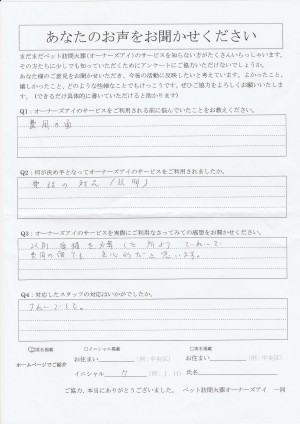 あなたのお声をお聞かせください
まだまだペット訪問火葬(オーナーズアイ)のサービスを知らない方がたくさんいらっしゃいます。
その方たちに少しでも知っていただくためにアンケートにご協力いただけないでしょうか。
あなた様のご意見をお聞かせいただき、今後の活動に反映したいと考えています。よかったこと、
嬉しかったこと、どのような些細なことでもけっこうです。ぜひご協力をよろしくお願いいたしま
す。(できるだけ具体的に書いていただけると助かります)
Q1:オーナーズアイのサービスをご利用される前に悩んでいたことをお教えください。
費用の面
Q2:何が決め手となってオーナーズアイのサービスをご利用されましたか。
電話の対応(説明)
Q3:オーナーズアイのサービスを実際にご利用なさってみての感想をお聞かせください。
以前
ていねいで
費用の面でも 良心的だと思います。
Q4:対応したスタッフの対応はいかがでしたか。
ていねいでした。
匿名掲載
□イニシャル掲載
□実名掲載
ホームページでご紹介
お住まい
(例:中央区)
お住まい
(例:中央区)
イニシャル
(例:I.H)
氏名
ご協力、本当にありがとうございました。 ペット訪問火葬オーナーズアイ 一同